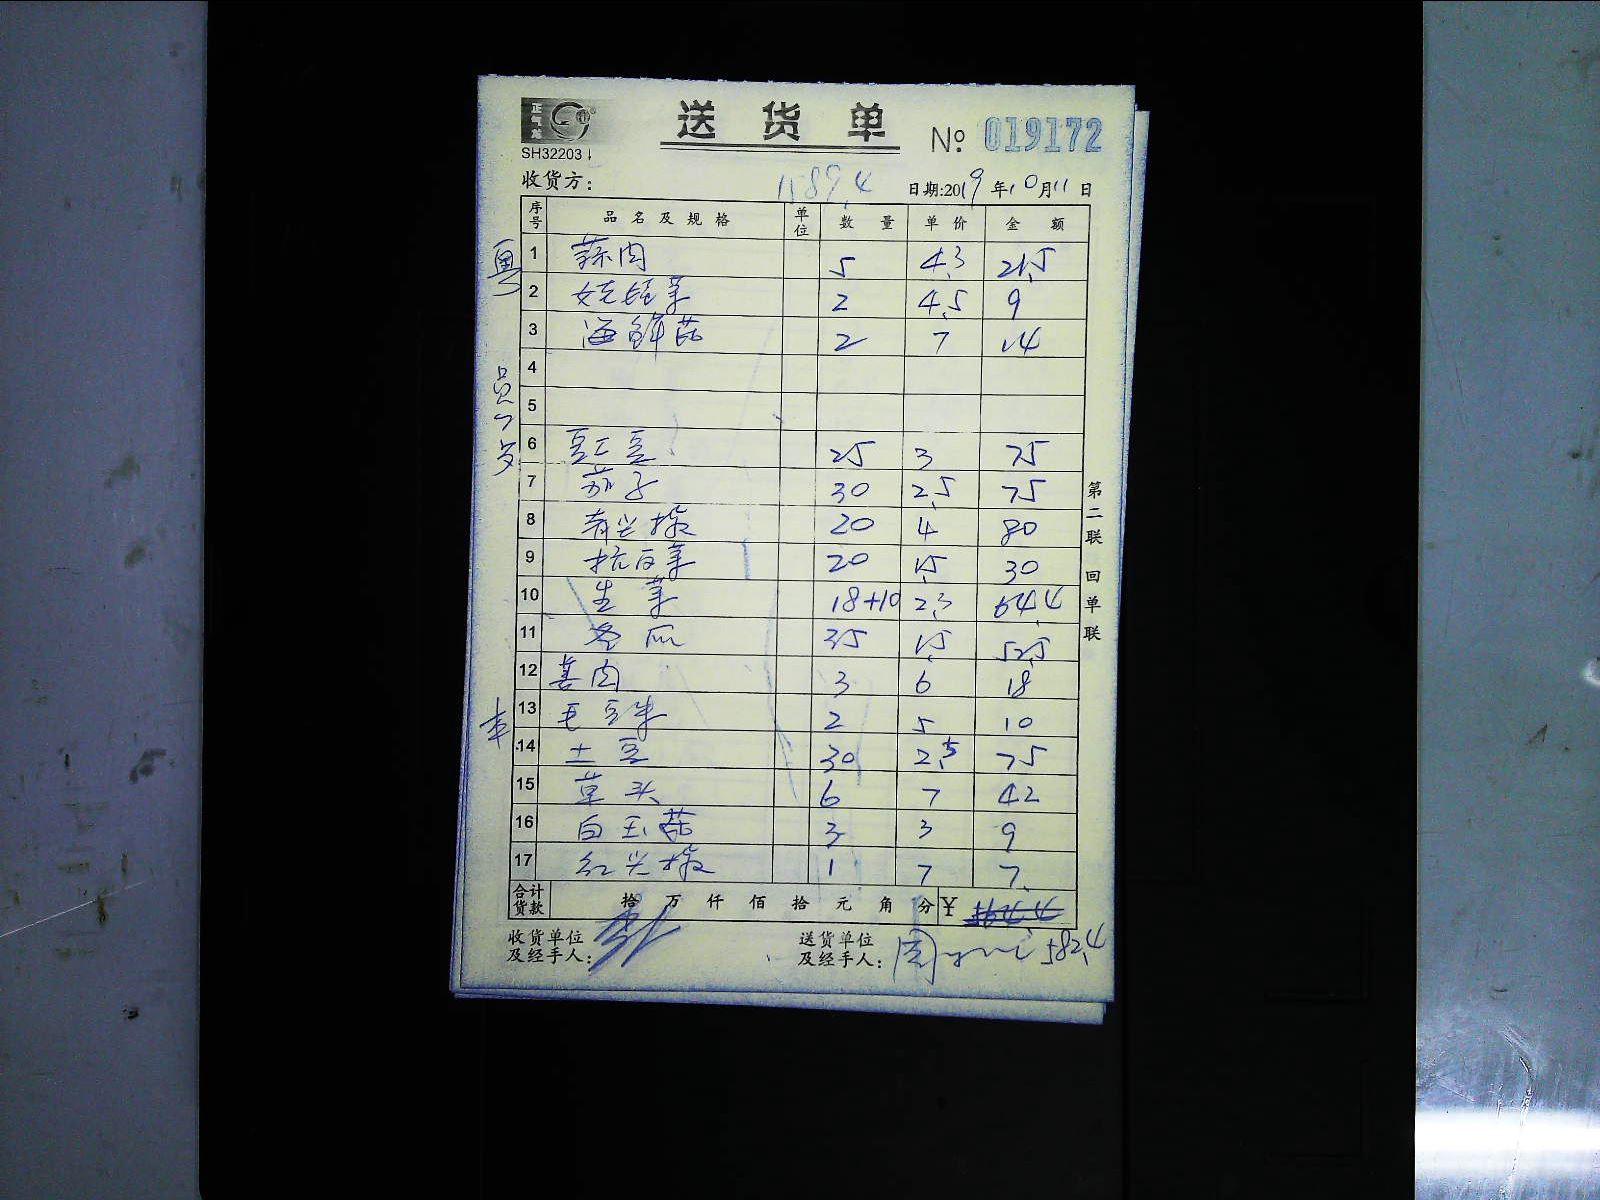 正气龙
SH32203
送货单
№ 019172
1589.4
收货方： 日期:2019年10月11日
序号 品名及规格 单位 数量 单价 金额
粤
1 蒜肉 5 4.3 21.5
2 娃娃菜 2 4.5 9
3 海鲜菇 2 7 14
4
5
员
6 豆工豆 25 3 75
7 茄子 30 2.5 75
8 青尖椒 20 4 80
9 杭白菜 20 1.5 30
10 生菜 18+10 2.3 64.4
11 冬瓜 35 1.5 52.5
12 姜肉 3 6 18
13 毛豆米 2 5 10
14 土豆 30 2.5 75
15 草头 6 7 42
16 白玉菇 3 3 9
17 红尖椒 1 7 7
第二联 回单联
合计货款 拾 万 仟 佰 拾 元 角 分 ¥
582.4
收货单位及经手人： 送货单位及经手人：